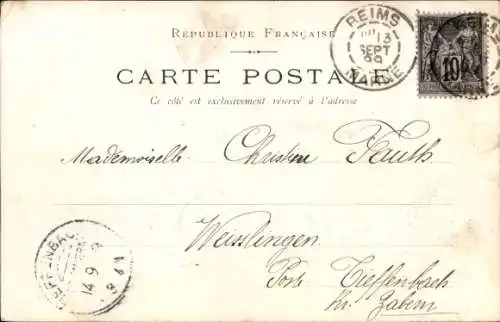 RÉPUBLIQUE FRANÇAISE
CARTE POSTALE
Ce côté est exclusivement réservé à l'adresse
REIMS
13
SEPT
99
MARNE
10
Mademoiselle Christien Fauth
Weisslingen
Post Tieffenbach
Kr. Zabern
TIEFFENBACH
14 9